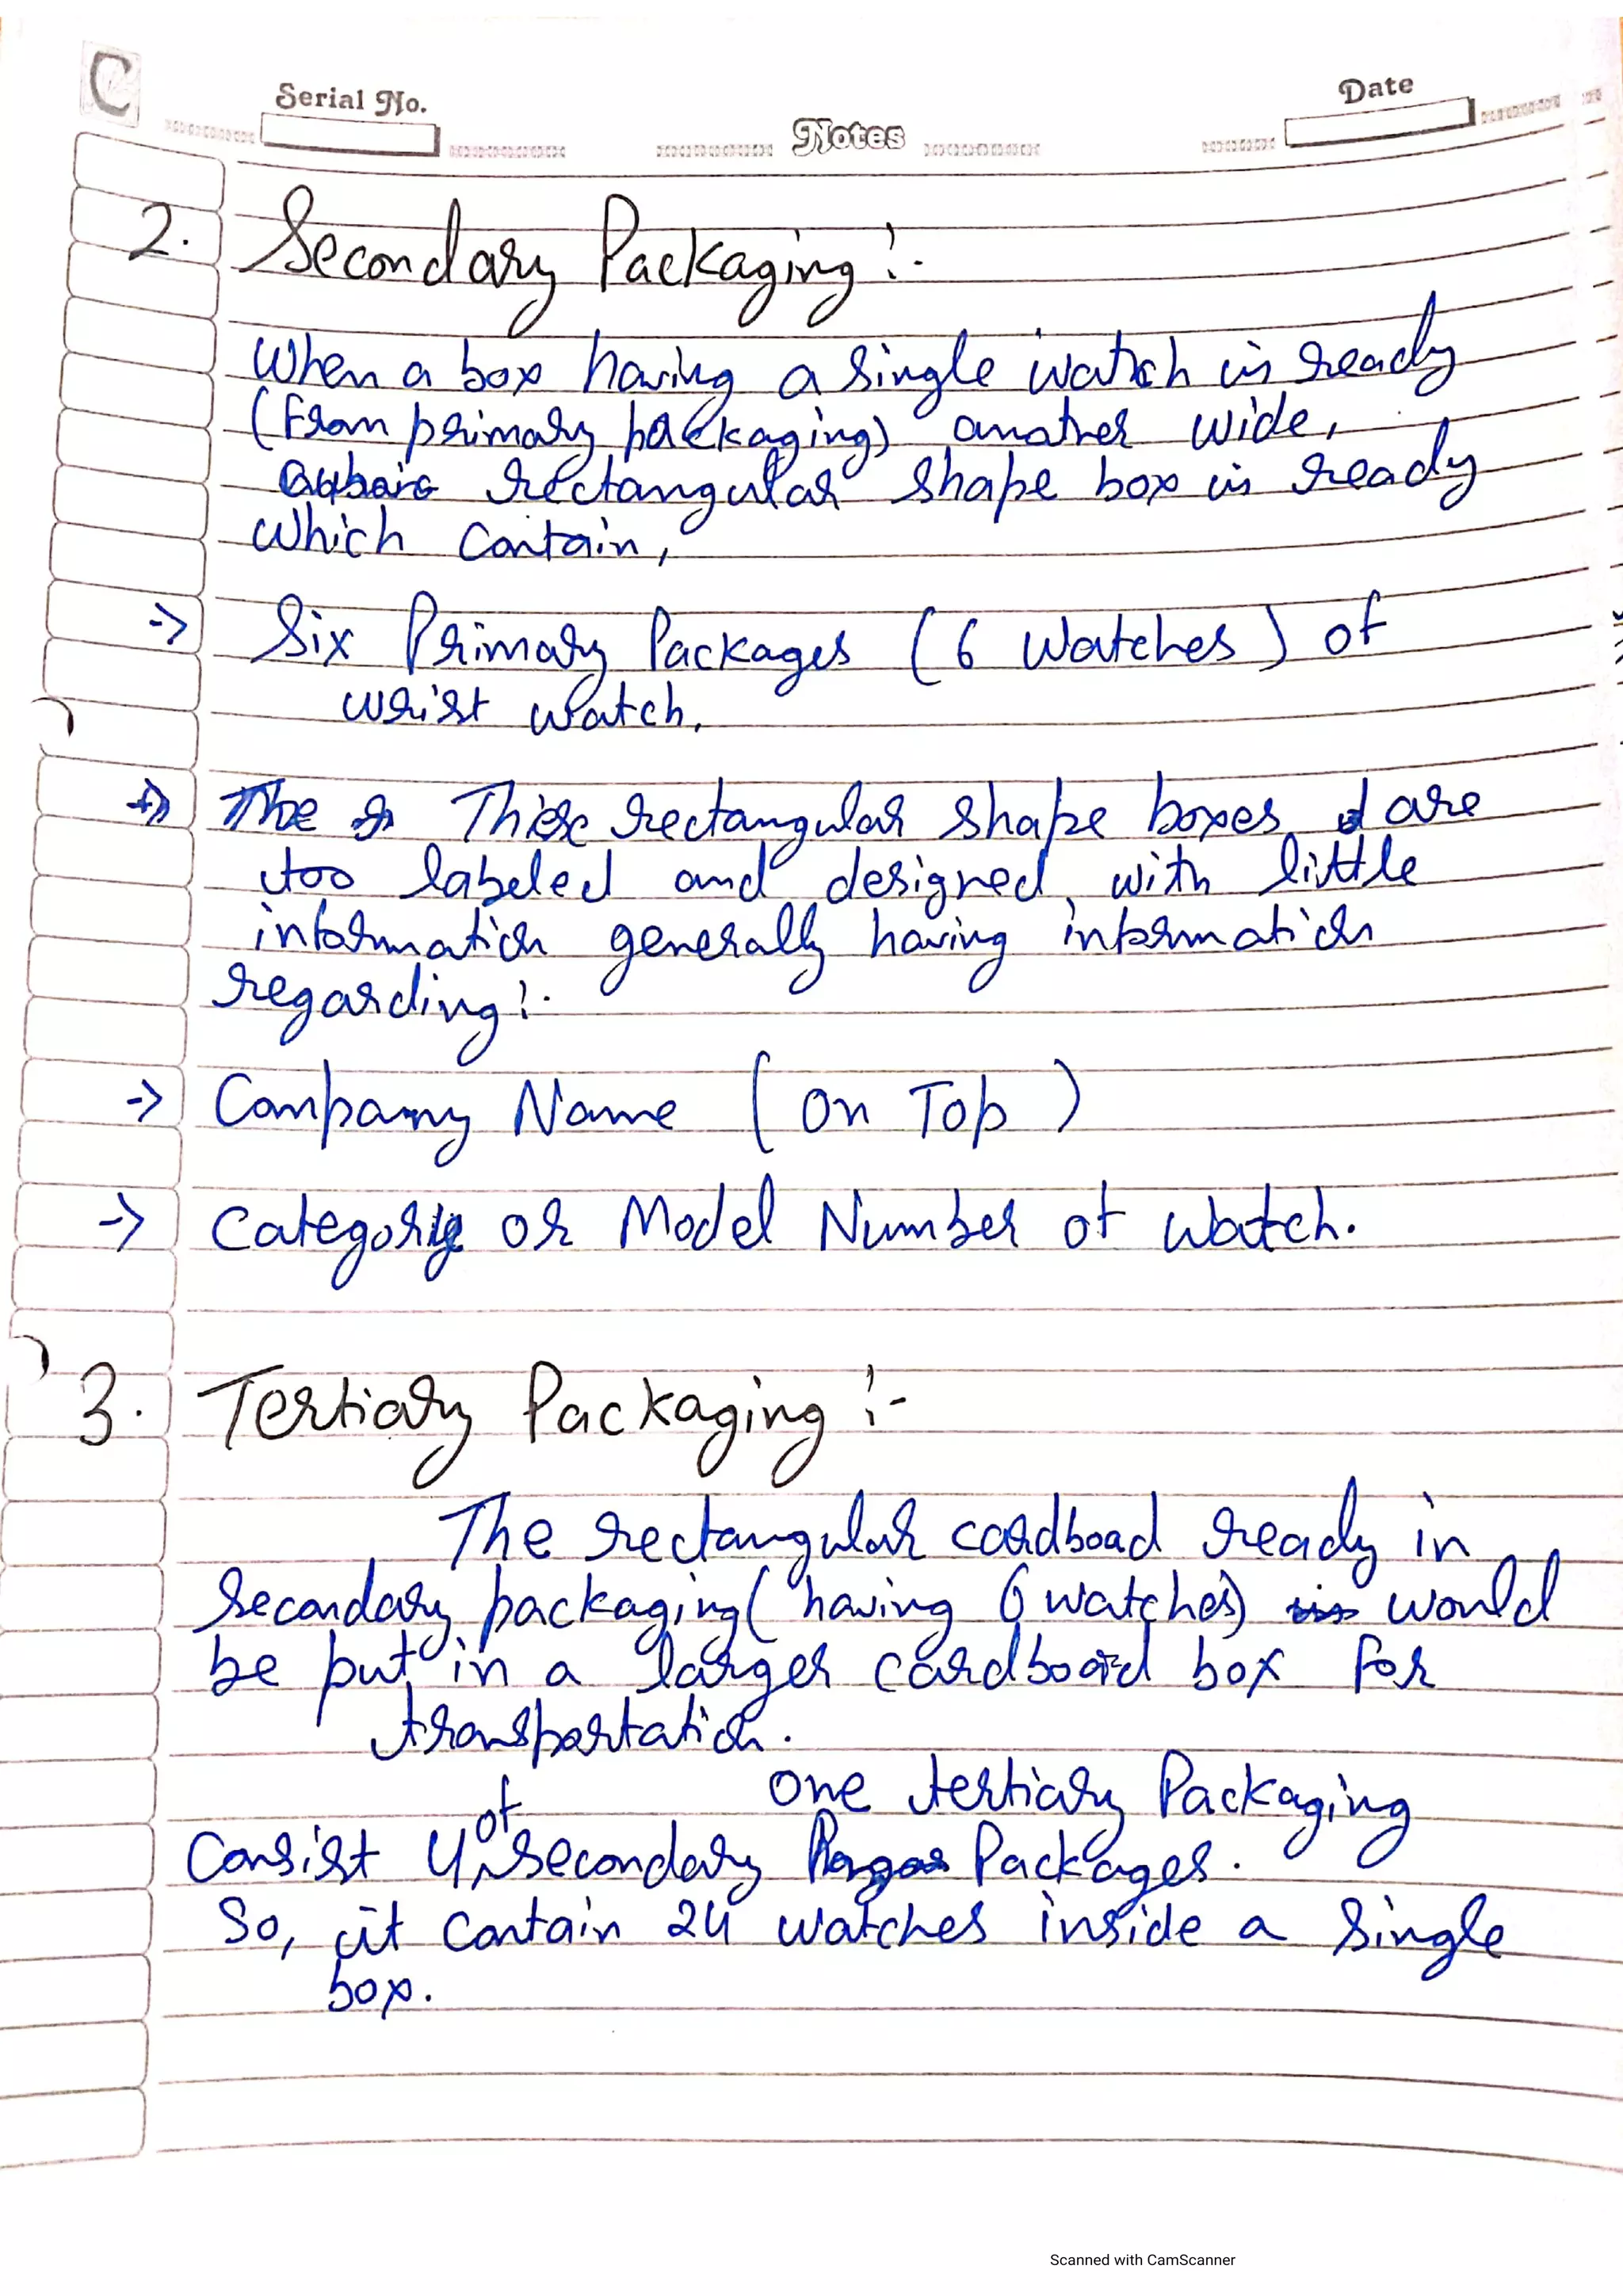 C
Serial No.
Date
Notes
2. Secondary Packaging :-
When a box having a single watch is ready
(From primary packaging) another wide,
rectangular shape box is ready
which contain,
-> Six Primary Packages (6 Watches) of
wrist watch.
-> The These rectangular shape boxes are
too labeled and designed with little
information generally having information
regarding :-
-> Company Name (On Top)
-> Category or Model Number of Watch.
3. Tertiary Packaging :-
The rectangular cardboad ready in
secondary packaging (having 6 watches) would
be put in a larger cardboard box for
transportation.
One tertiary Packaging
Consist 4 of secondary Packages.
So, it contain 24 watches inside a single
box.
Scanned with CamScanner